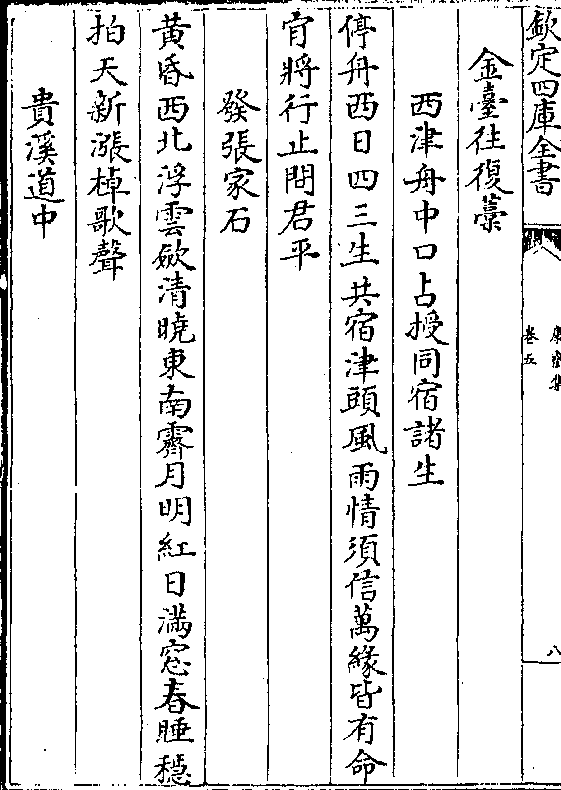 欽定四庫全書
康齋集
卷五
八
金臺往復藁
西津舟中口占授同宿諸生
停舟西日四三生共宿津頭風雨情須信萬緣皆有命
肎將行止問君平
發張家石
黃昏西北浮雲歛清曉東南霽月明紅日滿窓春睡穩
拍天新漲棹歌聲
貴溪道中